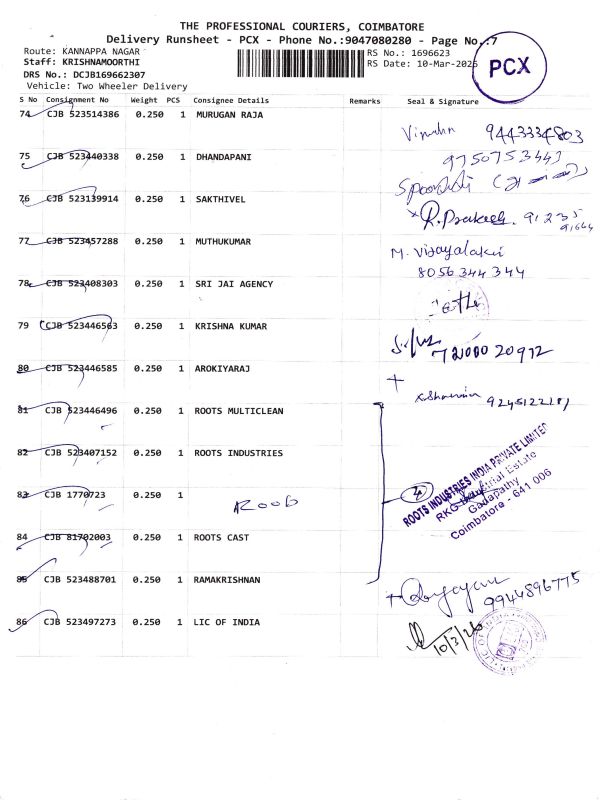 THE PROFESSIONAL COURIERS, COIMBATORE
Delivery Runsheet - PCX - Phone No.:9047080280 - Page No.:7
Route: KANNAPPA NAGAR
RS No.: 1696623
Staff: KRISHNAMOORTHI
RS Date: 10-Mar-2026
PCX
DRS No.: DCJB169662307
Vehicle: Two Wheeler Delivery
S No Consignment No Weight PCS Consignee Details Remarks Seal & Signature
74 CJB 523514386 0.250 1 MURUGAN RAJA
9443334803
75 CJB 523440338 0.250 1 DHANDAPANI
9750753443
76 CJB 523139914 0.250 1 SAKTHIVEL
R. Prakash. 91235
91644
77 CJB 523457288 0.250 1 MUTHUKUMAR
M. Vijayalaxi
8056 344 344
78 CJB 523408303 0.250 1 SRI JAI AGENCY
79 CJB 523446563 0.250 1 KRISHNA KUMAR
72000 20912
80 CJB 523446585 0.250 1 AROKIYARAJ
81 CJB 523446496 0.250 1 ROOTS MULTICLEAN
82 CJB 523407152 0.250 1 ROOTS INDUSTRIES
83 CJB 1770723 0.250 1
4
ROOTS INDUSTRIES INDIA PRIVATE LIMITED
RKG Industrial Estate
Ganapathy
Coimbatore - 641 006
84 CJB 81702003 0.250 1 ROOTS CAST
85 CJB 523488701 0.250 1 RAMAKRISHNAN
9944896775
86 CJB 523497273 0.250 1 LIC OF INDIA
10/3/26